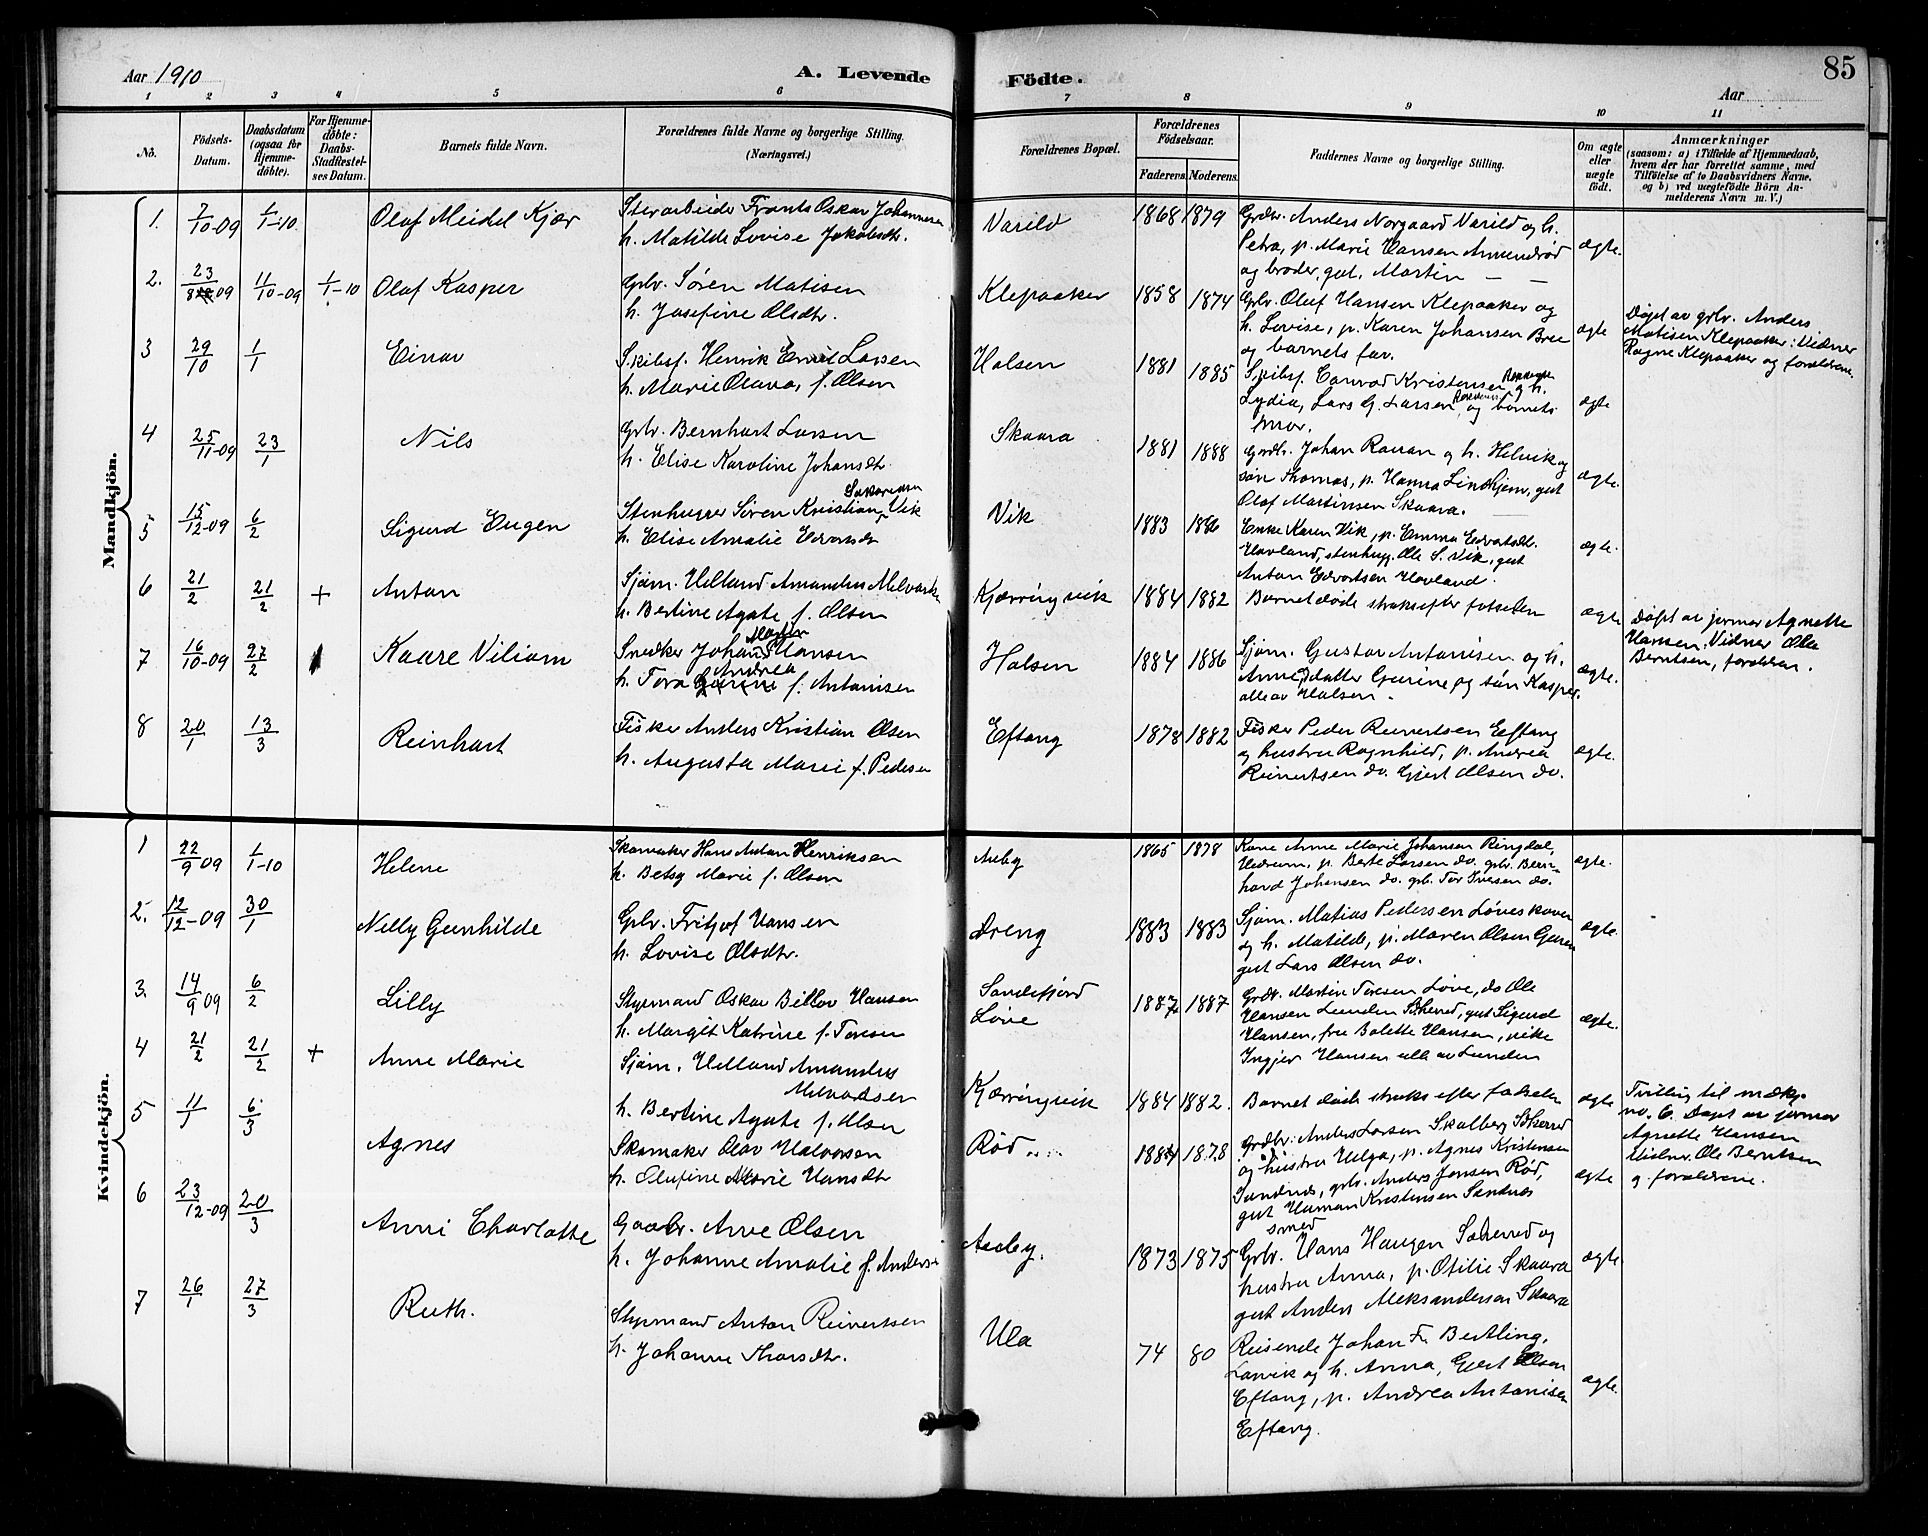 Aar 1910
A. Levende
Födte.
Aar
85
1 2 3 4 5 6 7 8 9 10 11
No.
Födsels-
Datum.
Daabsdatum
(ogsaa for
Hjemme-
döbte).
For Hjemme-
döbte:
Daabs-
Stadfæstel-
ses Datum.
Barnets fulde Navn.
Forældrenes fulde Navne og borgerlige Stilling.
(Næringsvei.)
Forældrenes Bopæl.
Forældrenes
Födselsaar.
Faderens. Moderens.
Faddernes Navne og borgerlige Stilling.
Om ægte
eller
uægte
födt.
Anmærkninger
(saasom: a) i Tilfælde af Hjemmedaab,
hvem der har forrettet samme, med
Tilföielse af to Daabsvidners Navne,
og b) ved uægtefödte Börn An-
melderens Navn m. V.)
Mandkjön.
1. 7/10-09 1/1-10. Olaf Meidel Kjær
Stenarbeider Frants Oskar Johannesen
h. Matilde Lovise Jakobsdtr.
Varild 1868 1879
Grdbr. Anders Norgaard Varild og h.
Petra, p. Marie Hansen Amundrød
og broder, gut. Martin —
ægte.
2. 23/8 09 11/10-09 1/1-10 Olaf Kasper
Grbr. Søren Matisen
h. Josefine Olsdtr.
Klepaaker 1858 1874
Grbr. Oluf Hansen Klepaaker og
h. Lovise, p. Karen Johansen Bree
og barnets far.
ægte
Døpt av grbr. Anders
Matisen Klepaaker: Vidner
Ragne Klepaaker og forældrene.
3 29/10 1/1 Einar
Skibsf. Henrik Emil Larsen
h. Marie Olava, f. Olsen
Halsen 1881 1885
Skibsf. Conrad Kristensen og h.
Lydia, Lars G. Larsen og barnets
mor.
ægte
4 25/11-09 23/1 Nils
Grbr. Bernhart Larsen
h. Elise Karoline Johansdtr.
Skaara 1881 1888
Grdbr. Johan Rauan og h. Helvik og
søn Thomas, p. Hanna Lindhjem, gut
Olaf Martinsen Skaara.
ægte.
5 15/12-09 6/2 Sigurd Eugen
Stenhugger Søren Kristian Sakariasen Vik
h. Elise Amalie Edvardsdtr
Vik 1883 1886
Enke Karen Vik, p. Emma Edvartsdt.
Havland, stenhugg. Ole S. Vik, gut
Anton Edvartsen Hovland.
ægte.
6 21/2 21/2 + Anton
Sjøm. Helland Amandus
h. Bertine Agate f. Olsen
Kjærringvik 1884 1882
Barnet døde straks efter fødselen
ægte
Døpt av jormor Agnette
Hansen, Vidner Olle
Berntsen, forældren.
7 16/10-09 27/2 Kaare Viliam
Snedker Johan Martin Hansen
h. Tora Andrea f. Antonisen
Halsen 1884 1886
Sjøm. Gustav Antonisen og h.
Anne, datter Gurine og søn Kasper
alle av Halsen.
ægte.
8 20/1 13/3 Reinhart
Fisker Anders Kristian Olsen
h. Augusta Marie f. Pedersen
Eftang 1878 1882
Fisker Peder Reinertsen Eftang
og hustru Ragnhild, p. Andrea
Reinertsen do. Gjert Olsen do.
ægte.
Kvindekjön.
1 22/9 09 1/1-10 Helene
Skomaker Hans Anton Henriksen
h. Betsy Marie f. Olsen
Auby 1865 1878
Kone Anne Marie Johansen Ringdal,
Hedrum, p. Berte Larsen do. grbr. Bern-
hard Johansen do. grb. Tor Iversen do.
ægte.
2. 12/12-09 30/1 Nelly Gunhilde
Grbr. Fritjof Hansen
h. Lovise Olsdtr.
Øreng 1883 1883
Sjøm. Matias Pedersen Løveskoven
og h. Matilde, p. Maren Olsen
gut Lars Olsen do.
ægte.
3. 14/9 09 6/2 Lilly
Styrmand Oskar Hansen
h. Margit Katrine f. Toresen
Sandefjord
Løve 1887 1887
Grdr. Martin Toresen Løve, do Ole
Hansen Lunden Sthered, gut Sigurd
Hansen, fru Bolette Hansen, pike
Ingjer Hansen alle av Lunden
ægte.
4 21/2 21/2 + Anne Marie
Sjøm. Helland Amandus
h. Bertine Agate f. Olsen
Kjærringvik 1884 1882.
Barnet døde straks efter fødselen
ægte
Tvilling til mandkj.
no. 6. Døpt av jormor
Agnette Hansen
Vidner Ole Berntsen
og forældrene.
5 11/1 6/3 Agnes
Skomaker Olav Halvorsen
h. Olufine Marie Hansdtr
Rød 1884 1878
Grdbr. Anders Larsen Skalberg
og hustru Helga, p. Agnes Kristensen
Sundnes, grbr. Anders Jensen Rød,
gut Herman Kristensen Sandnæs
ægte
6 23/12-09 20/3 Anni Charlotte
Gaabr. Arve Olsen
h. Johanne Amalie f. Anders
Auby. 1873 1875
smed
Grbr. Hans Haugen og
hustru Anna, p. Otilie Skaara
gut Anders Aleksandersen Skaara
ægte.
7 26/1 27/3 Ruth.
Styrmand Anton Reinertsen
h. Johanne Thorsdtr.
Ula 74 80
Reisende Johan Fr. Bertling,
Larvik og h. Anna, Gjert Olsen
Eftang, p. Andrea Antonisen
Eftang.
ægte.